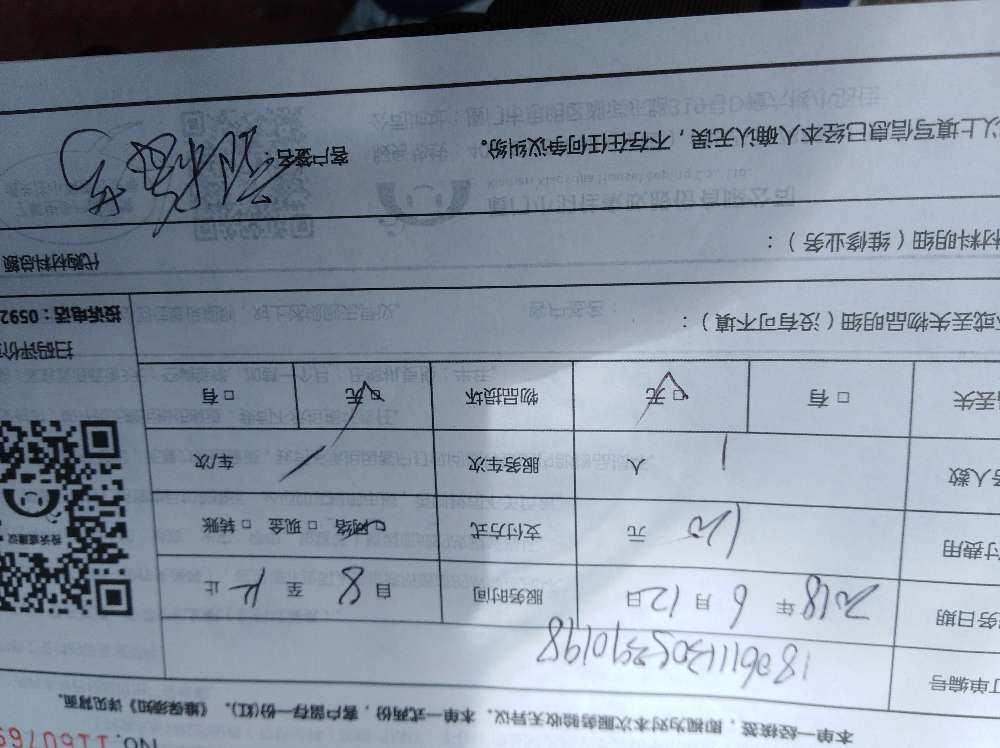 No.1160769
本单一经核签，即视为对本次服务验收无异议。本单一式两份，客户留存一份(红)。《维保须知》详见背面。
订单编号 18061113053910198
务日期 2018 年 6 月 12 日 服务时间 自 8 至 12 止
付费用 120 元 支付方式 □网络 □现金 □转账
务人数 1 人 服务车次 / 车次
丢失 □有 □无 物品损坏 □无 □有
扫码评价
投诉建议
或丢失物品明细（没有可不填）：
投诉电话：0592
材料明细（维修业务）：
代购材料总额
以上填写信息已经本人确认无误，不存在任何争议纠纷。 客户签名：